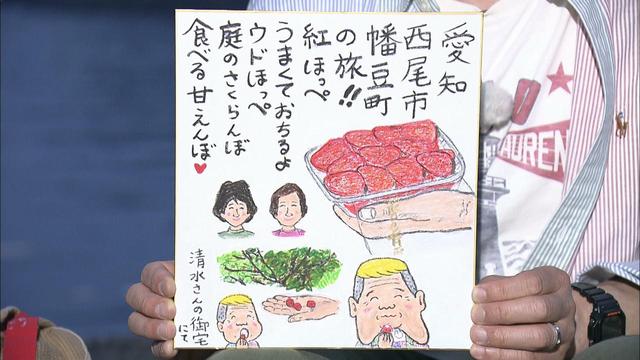 愛知
西尾市
幡豆町
の旅!!
紅ほっぺ
うまくておちるよ
ウドほっぺ
庭のさくらんぼ
食べる甘えんぼ♥
清水さんの御宅
にて
AUREN